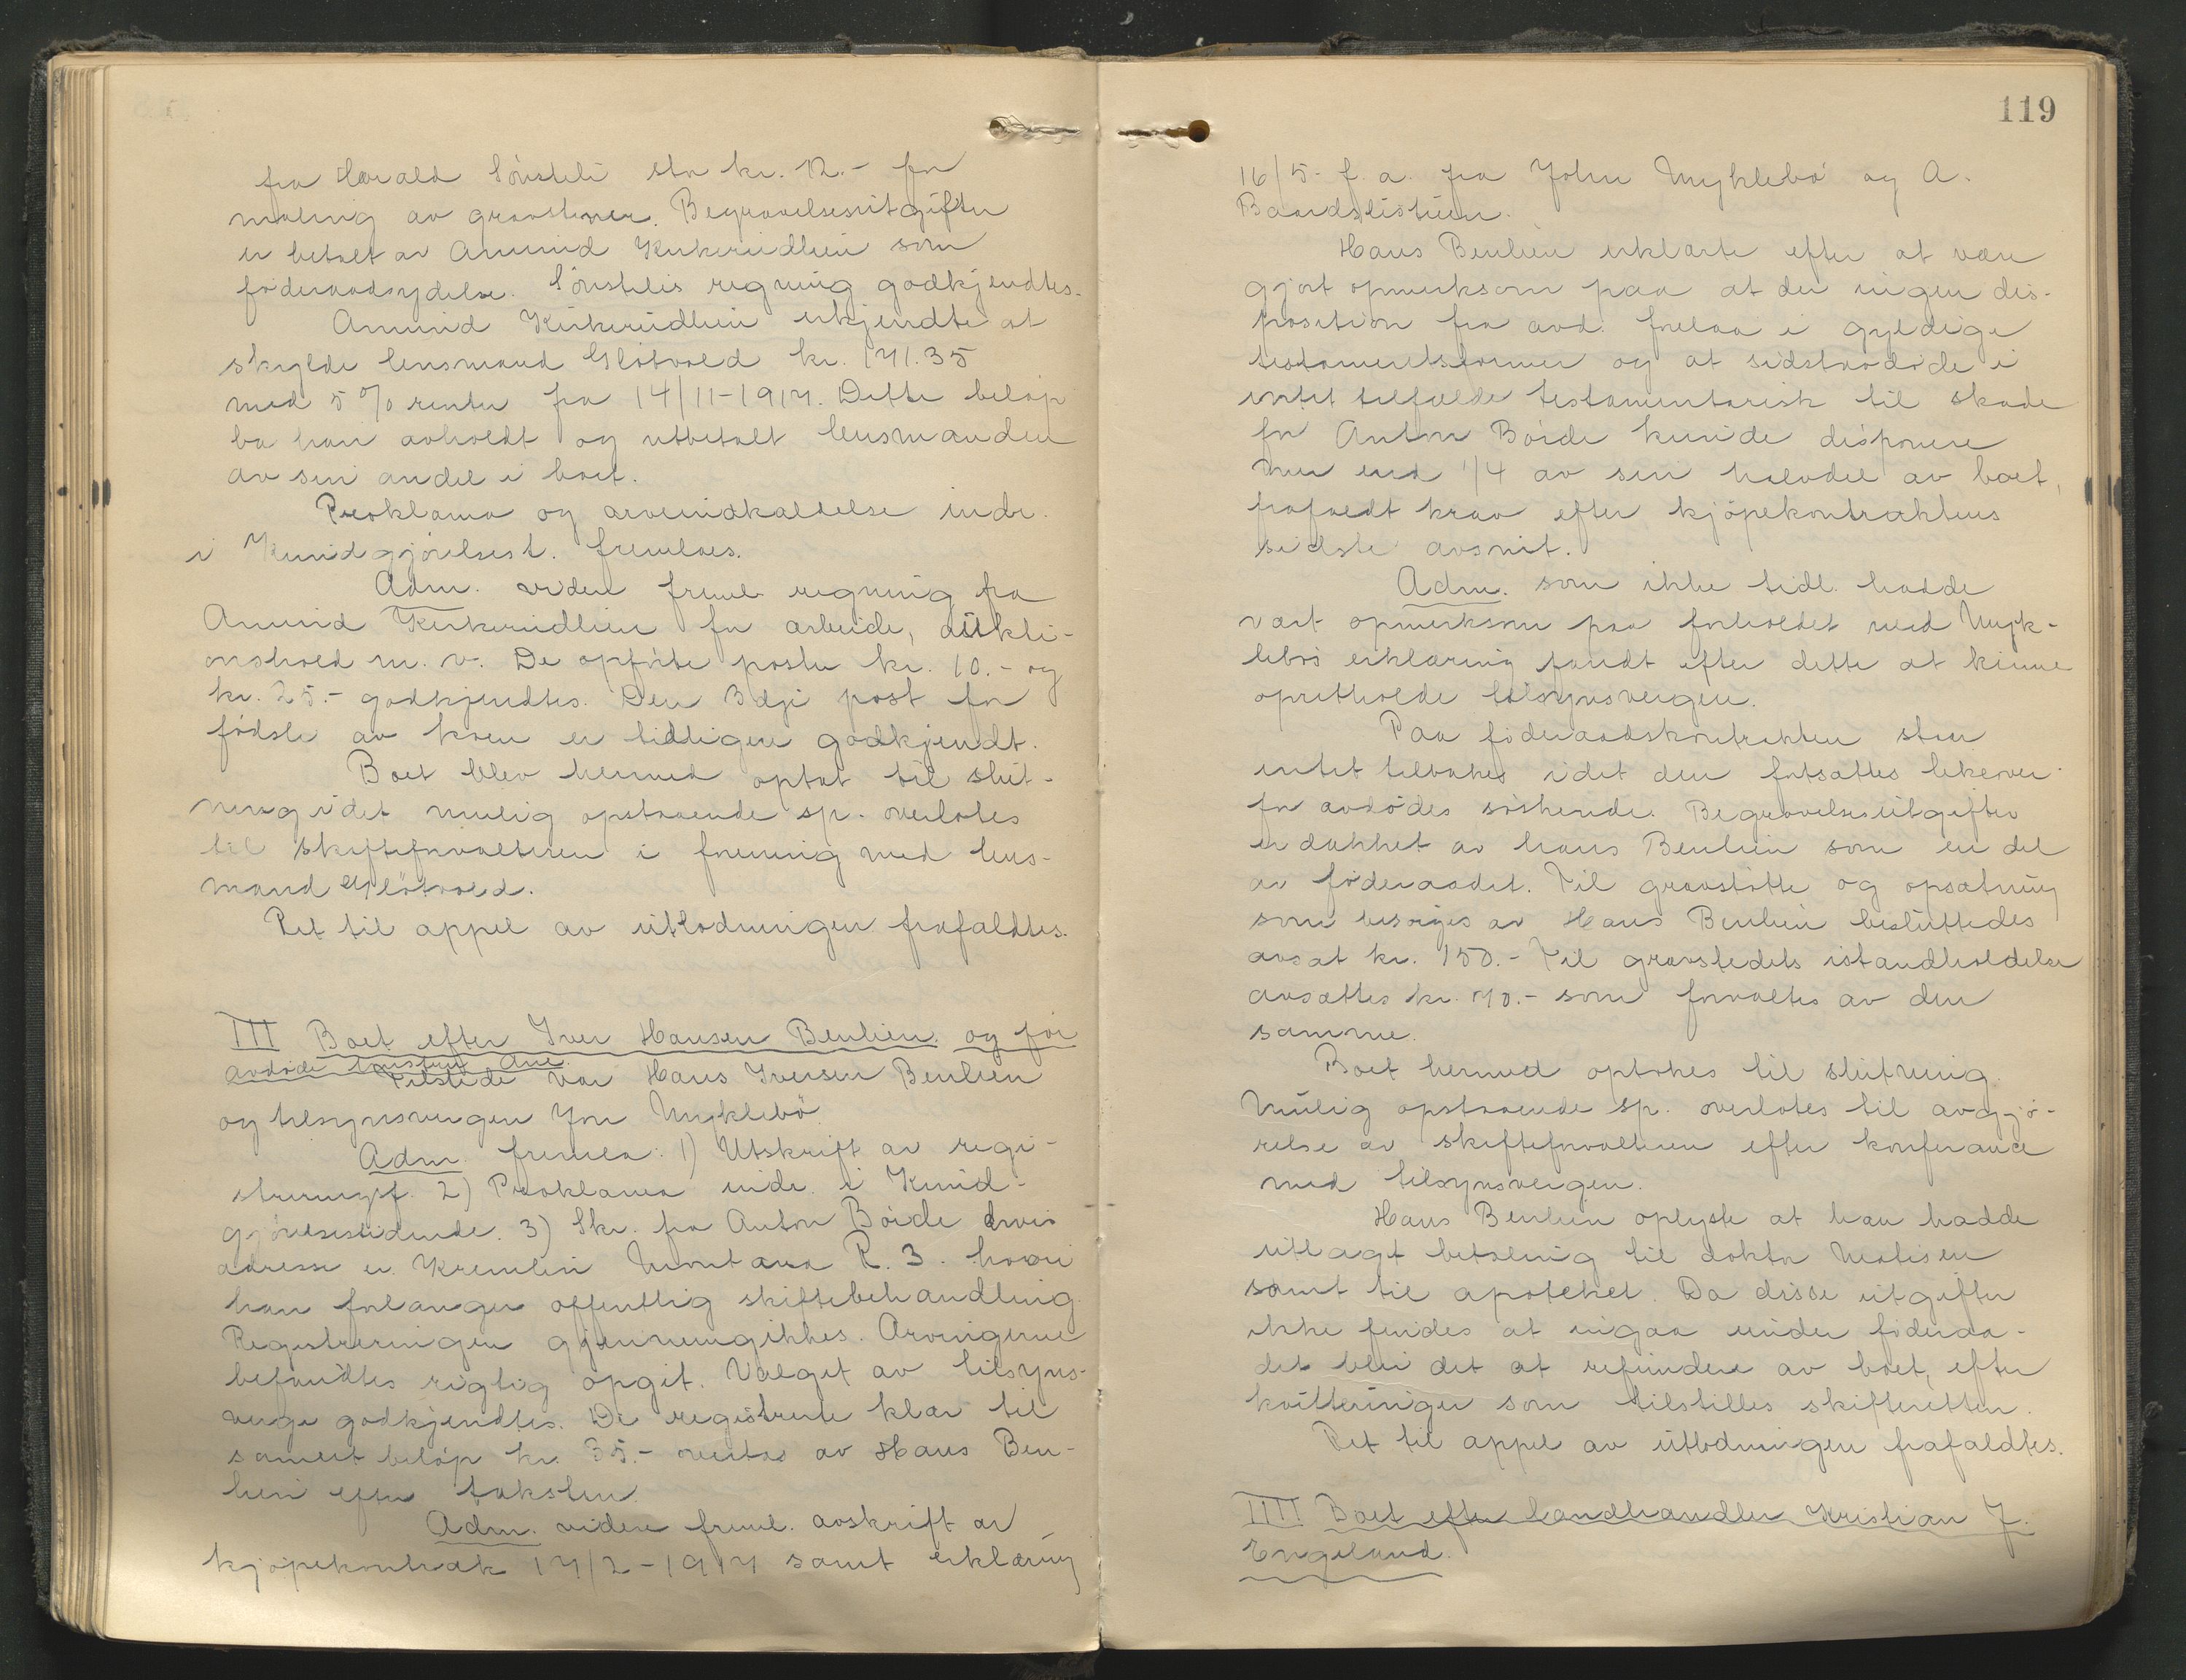 fra Harald Sönsteli sto kr. 12.- for
maling av gravstener. Begravelsesutgifter
er betalt av Amund Kirkerudlien som
föderaadsydelse. Sönstelis regning godkjendtes.
Amund Kirkerudlien erkjendte at
skylde lensmand Slötvold kr. 171.35
med 5 % renter fra 14/11-1917. Dette belöp
ba han avholdt og utbetalt lensmanden
av sin andel i boet.
Proklama og arveindkaldelse indr.
i Kundgjörelsest. fremlaes.
Adm. videre freml. regning fra
Amund Kirkerudlien for arbeide, aukti-
onshold m. v. De opförte poster kr. 10.- og
kr. 25.- godkjendtes. Den 3dje post for
födsle av kuen er tidligere godkjendt.
Boet blev hermed optat til slut-
ning idet mulig opstaaende sp. overlates
til skifteforvalteren i forening med lens-
mand Slötvold.
Ret til appel av utlodningen frafaldtes.
III Boet efter Iver Hansen Benlien. og för
avdöde hustru Ane.
Tilstede var Hans Iversen Benlien
og tilsynsvergen Jon Myklebö
Adm. fremla: 1) Utskrift av regi-
streringsf. 2) Proklama indr. i Kund-
gjörelsestidende. 3) Skr. fra Anton Böide hvis
adresse er Kremlin Montana R. 3. hvori
han forlanger offentlig skiftebehandling.
Registreringen gjennemgikkes. Arvingerne
befandtes rigtig opgit. Valget av tilsyns-
verge godkjendtes. De registrerte klær til
samlet belöp kr. 35.- overtas av Hans Ben-
lien efter taksten.
Adm. videre freml. avskrift av
kjöpekontrakt 17/2-1917 samt erklæring
119
16/5- f. a. fra John Myklebö og A.
Baardslistuen.
Hans Benlien erklærte efter at være
gjort opmerksom paa at der ingen dis-
position fra avd. forelaa i gyldige
testamentsformer og at sidstavdöde i
intet tilfælde testamentarisk til skade
for Anton Böide kunde disponere
mer end 1/4 av sin halvdel av boet,
frafaldt krav efter kjöpekontraktens
sidste avsnit.
Adm. som ikke tidl. hadde
vært opmerksom paa forholdet med Myk-
lebös erklæring fandt efter dette at kunne
opretholde tilsynsvergen.
Paa föderaadskontrakten staar
intet tilbakes idet den fortsattes likeover-
for avdödes söskende. Begravelsesutgifter
er dækket av Hans Benlien som en del
av föderaadet. Til gravstötte og opsætning
som besörges av Hans Benlien besluttedes
avsat kr. 150.- Til gravstedets istandholdelse
avsattes kr. 70.- som forvaltes av den
samme.
Boet hermed optokes til slutning.
Mulig opstaaende sp. overlates til avgjö-
relse av skifteforvalteren efter konferance
med tilsynsvergen.
Hans Benlien oplyste at han hadde
utlagt betaling til doktor Matisen
samt til apoteket. Da disse utgifter
ikke findes at ingaa under föderaa-
det blir det at refundere av boet, efter
kvitteringer som tilstilles skifteretten.
Ret til appel av utlodningen frafaldtes.
IIII Boet efter landhandler Kristian J.
Engeland.